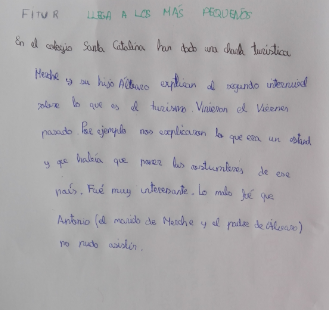 FITUR LLEGA A LOS MÁS PEQUEÑOS
En el colegio Santa Catalina han dado una charla turística
Meseche y su hijo Álvaro explican al segundo internivel
sobre lo que es el turismo. Vinieron el Viernes
pasado Por ejemplo nos explicaron lo que era un stand
y que habría que poner las costumbres de ese
país. Fué muy interesante. Lo malo fué que
Antonio (el marido de Meseche y el padre de Álvaro)
no pudo asistir.